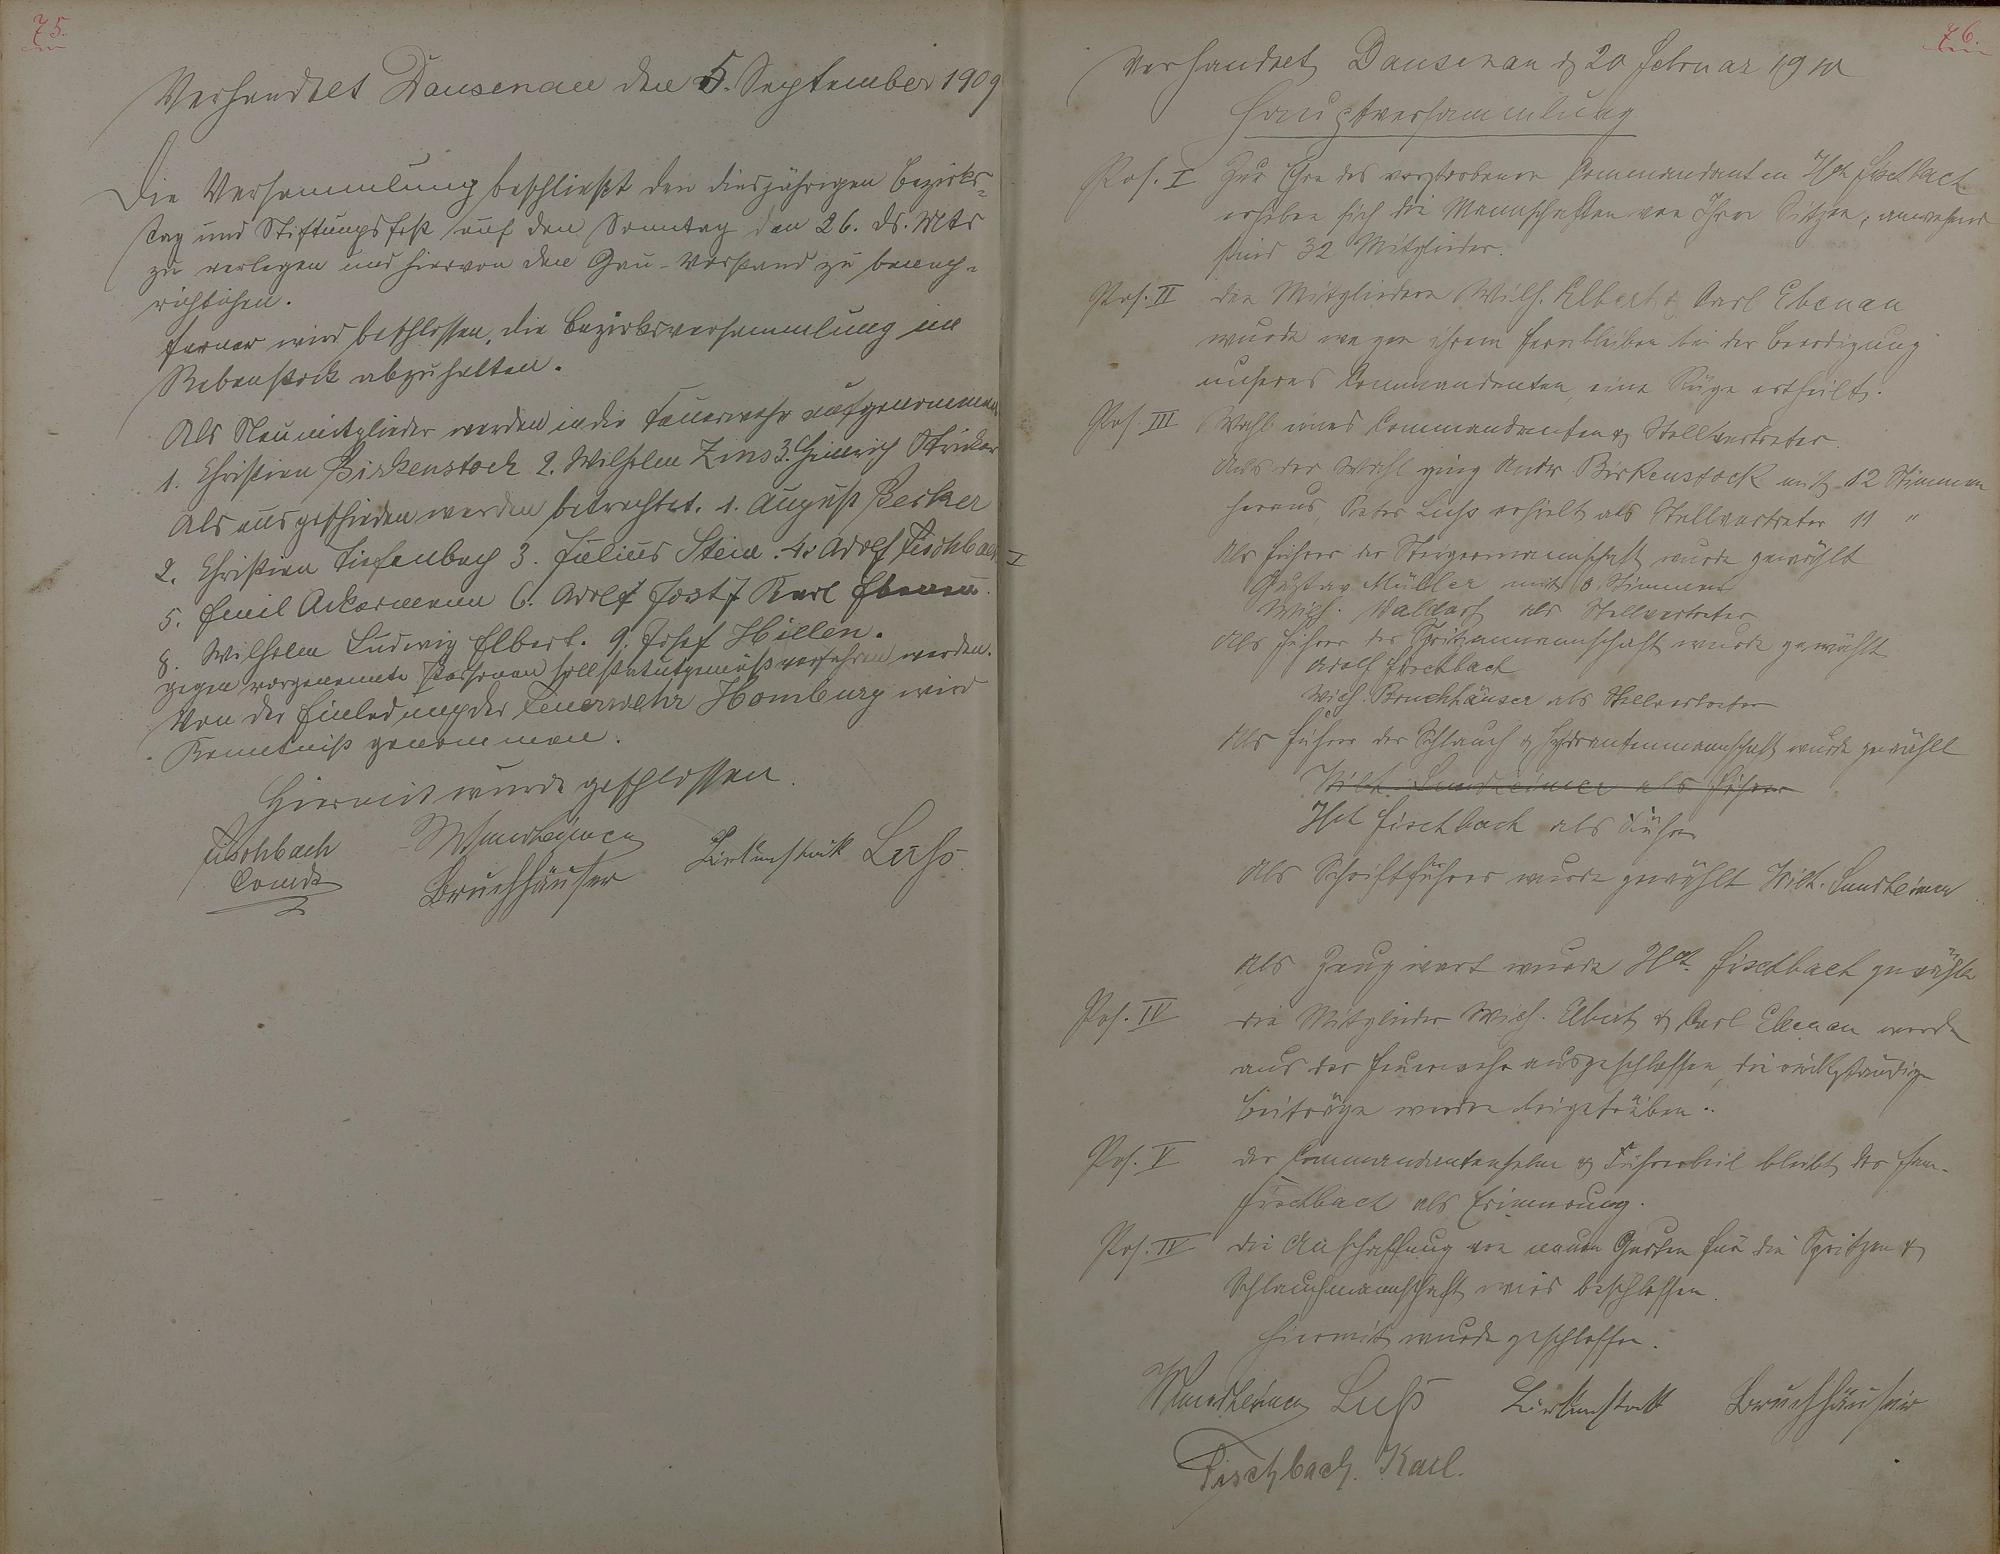 75.
Verhandelt Dausenau den 5. September 1909
Die Versammlung beschließt den diesjährigen Bezirks=
tag und Stiftungsfest auf den Sonntag den 26. ds. Mts
zu verlegen und hiervon den Gau-Vorstand zu benach=
richtigen.
Ferner wird beschlossen, die Bezirksversammlung im
Rebenstock abzuhalten.
Als Neumitglieder werden in die Feuerwehr aufgenommen
1. Christian Birkenstock 2. Wilhelm Zins 3. Heinrich Stricker
Als ausgeschieden werden betrachtet. 1. August Becker
2. Christian Tiefenbach 3. Julius Stein. 4. Adolf Fischbach I
5. Emil Ackermann 6. Adolf Jost 7 Karl Ebenau.
8. Wilhelm Ludwig Elbert. 9. Josef Hillen.
gegen vorgenannte Personen soll statutgemäß verfahren werden.
Von der Einladung der Feuerwehr Homburg wird
Kenntniß genommen.
Hiermit wurde geschlossen.
Fischbach Birkenstock Luss
Comdt Bruchhäuser
76.
Verhandelt Dausenau d 20 Februar 1910
Hauptversammlung
Pos. I Zur Ehre des verstorbenen Commandanten Hch Fischbach
erheben sich die Mannschaften von Ihren Sitzen, anwesend
sind 32 Mitglieder.
Pos. II den Mitgliedern Wilh. Elbert & Carl Ebenau
wurde wegen ihrem Fernbleiben bei der Beerdigung
unseres Commandanten eine Rüge ertheilt.
Pos. III Wahl eines Commandanten & Stellvertreter.
Aus der Wahl ging Birkenstock mit 12 Stimmen
heraus, Peter Luss erhielt als Stellvertreter 11 "
Als Führer der Steigermannschaft wurde gewählt
Gustav Müller mit Stimmen
Wilh. Waldorf als Stellvertreter
Als Führer der Spritzenmannschaft wurde gewählt
Adolf Fischbach
Wilh. Bruchhäuser als Stellvertreter
Als Führer der Schlauch & Hydrantenmannschaft wurde gewählt
Wilh. als Führer
Hch Fischbach als Führer
Als Schriftführer wurde gewählt Wilh.
Als Zeugwart wurde Hch. Fischbach gewählt
Pos. IV die Mitglieder Wilh. Elbert & Carl Ebenau werden
aus der Feuerwehr ausgeschlossen, die rückständige
Beiträge werden beigetrieben.
Pos. V der Commandantenhelm & Führerbeil bleibt der Fam.
Fischbach als Erinnerung.
Pos. IV die Anschaffung von neuen Gurten für die Spritzen &
Schlauchmannschaft wird beschlossen.
Hiermit wurde geschlossen.
Luss Birkenstock Bruchhäuser
Fischbach. Karl.